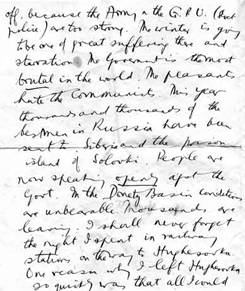 off, because the Army & the G.P.U. (
police) are too strong. The winter is going
to be one of great suffering there and
starvation. The Government is the most
brutal in the world. The peasants
hate the Communists. This year
thousands and thousands of the
best men in Russia have been
sent to Siberia and the prison
island of Solovki. People are
now speaking openly against the
Govt. In the Donetz Basin conditions
are unbearable. Thousands are
leaving. I shall never forget
the night I spent in a railway
station on the way to Hughesovka.
One reason why I left Hughesovka
so quickly was that all I could